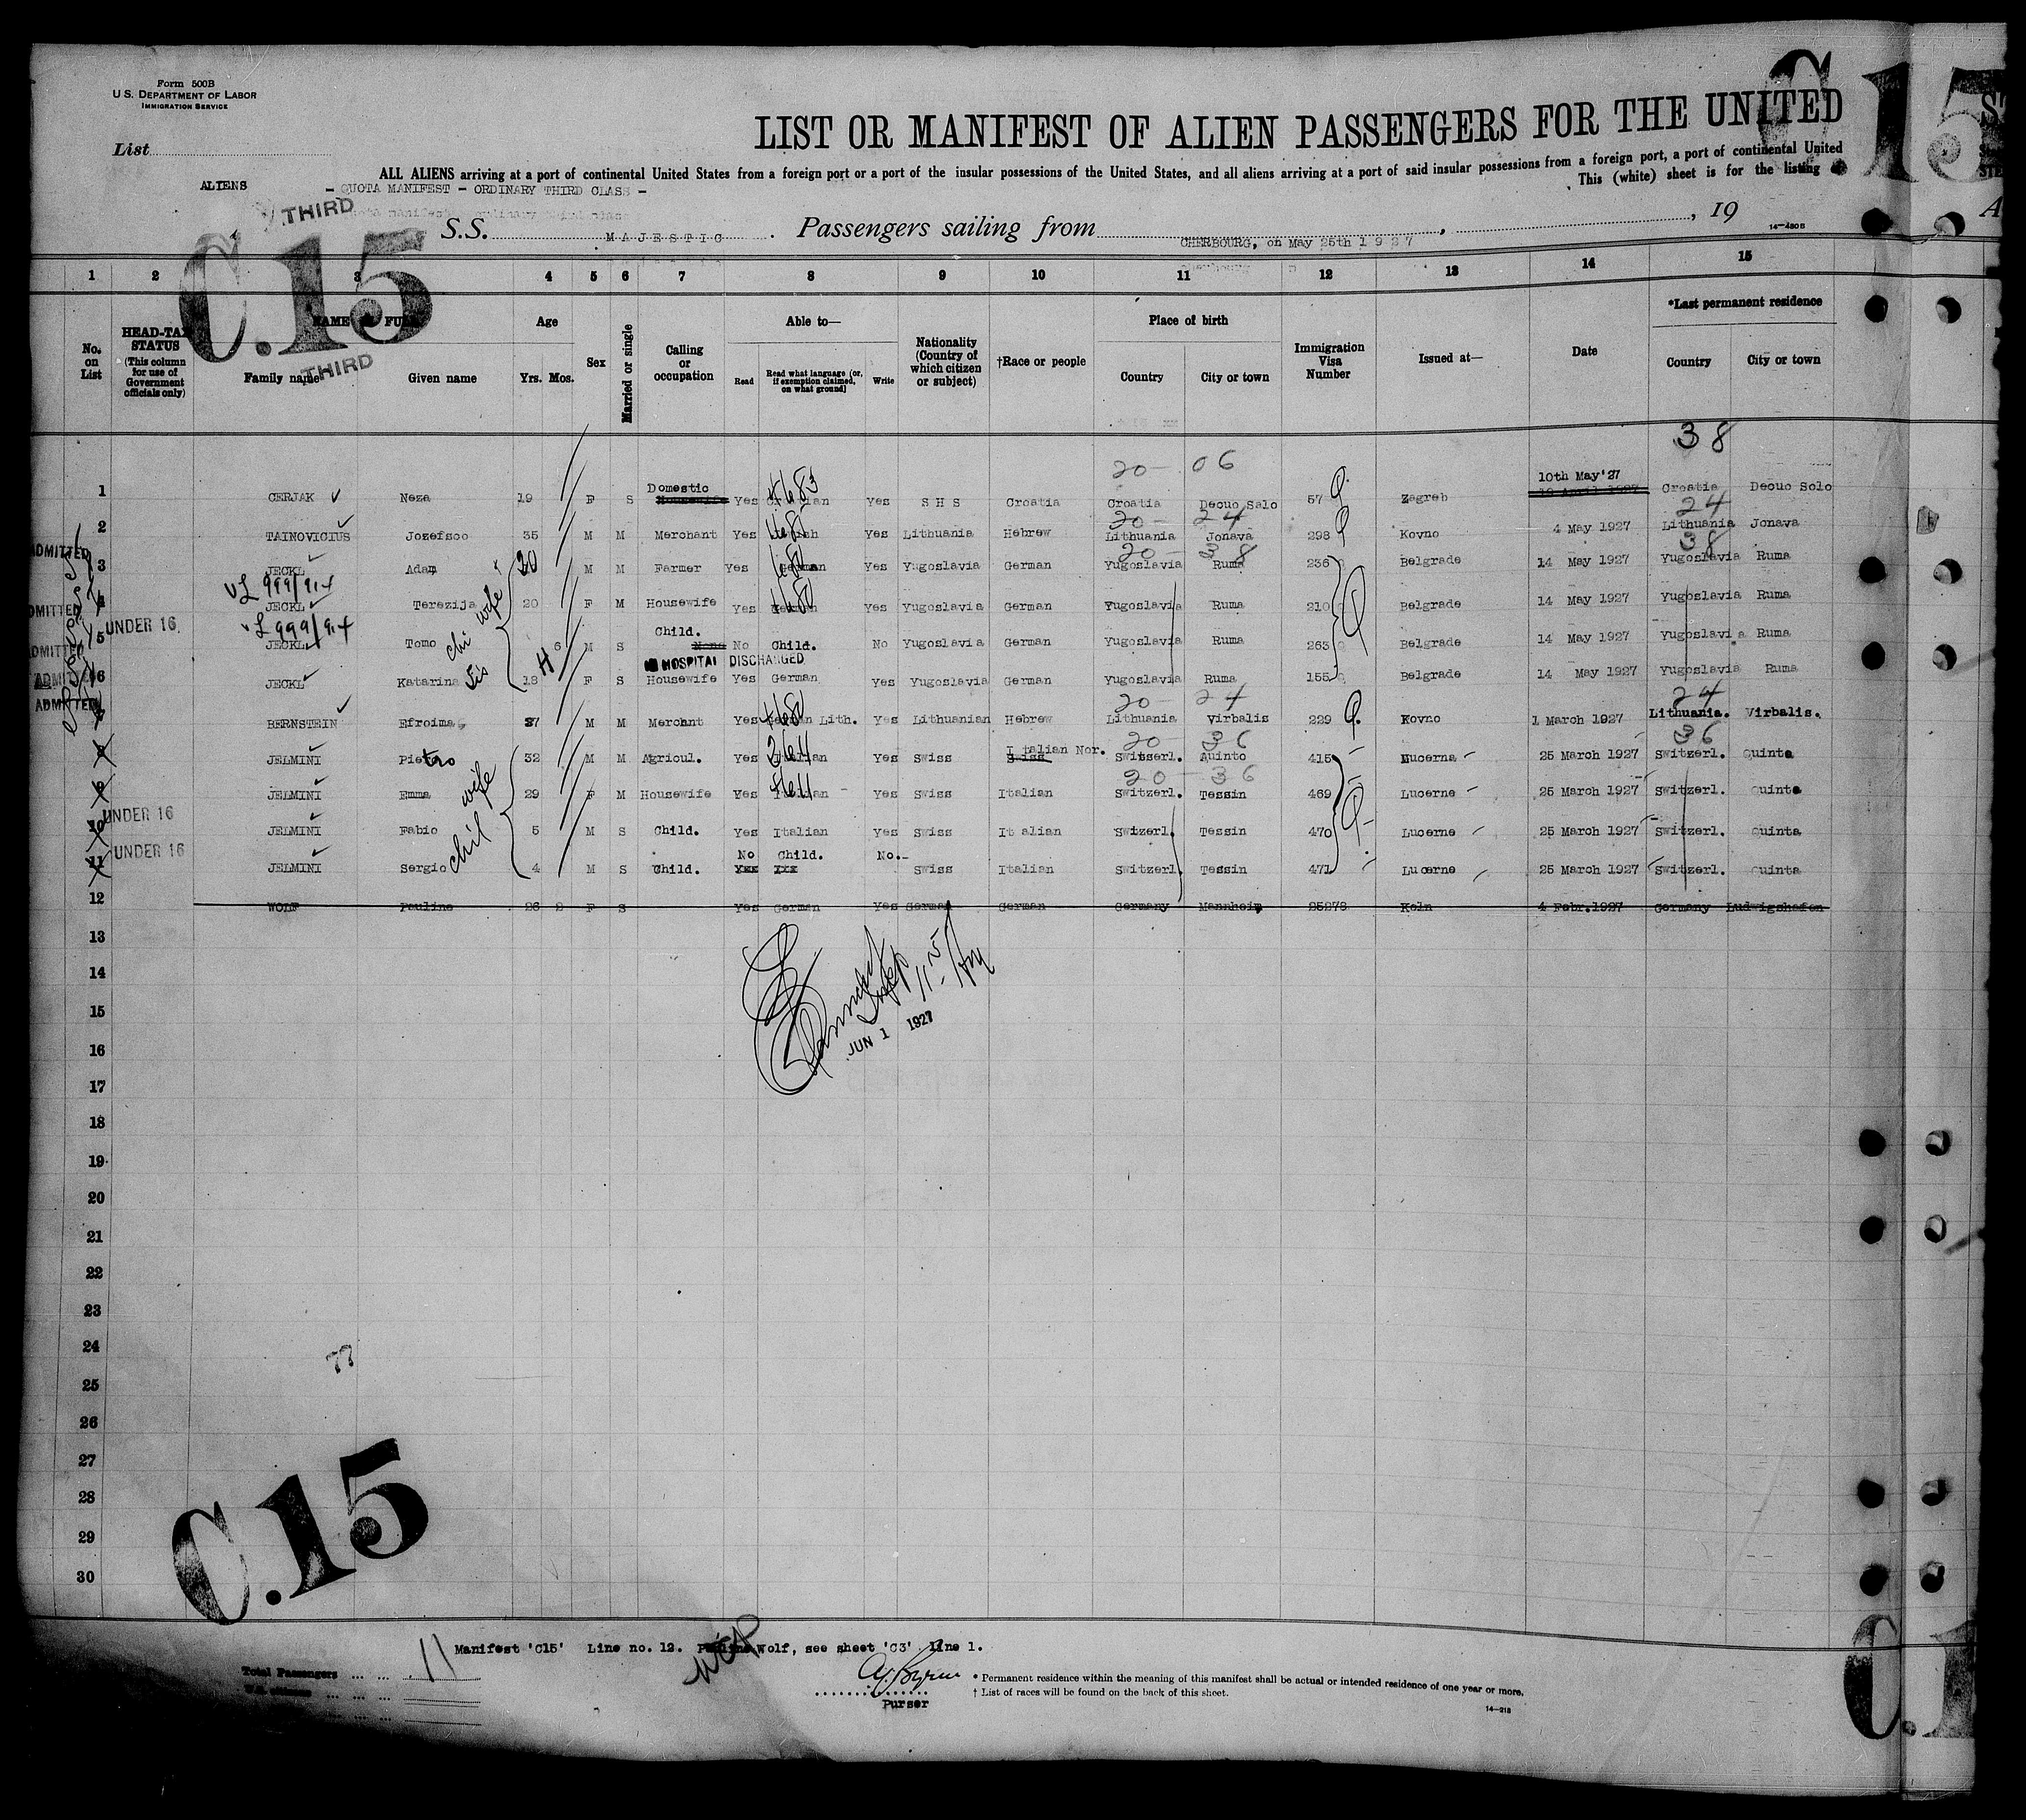 Form 500B
U.S. DEPARTMENT OF LABOR
IMMIGRATION SERVICE
C 15
LIST OR MANIFEST OF ALIEN PASSENGERS FOR THE UNITED
List
ALL ALIENS arriving at a port of continental United States from a foreign port or a port of the insular possessions of the United States, and all aliens arriving at a port of said insular possessions from a foreign port, a port of continental United
ALIENS - QUOTA MANIFEST - ORDINARY THIRD CLASS -
This (white) sheet is for the listing
THIRD
S.S. MAJESTIC . Passengers sailing from CHERBOURG, on May 25th 1927, 19
14-430B
C.15
THIRD
1 2 3 4 5 6 7 8 9 10 11 12 13 14 15
No. on List
HEAD-TAX STATUS (This column for use of Government officials only)
NAME FULL
Family name Given name
Age
Yrs. Mos.
Sex
Married or single
Calling or occupation
Able to—
Read Read what language (or, if exemption claimed, on what ground) Write
Nationality (Country of which citizen or subject)
†Race or people
Place of birth
Country City or town
Immigration Visa Number
Issued at—
Date
*Last permanent residence
Country City or town
38
20- 06
1 CERJAK Neza 19 F S Domestic Housewife Yes 4683 Yes S H S Croatia Croatia Decuo Salo 57 Zagreb 10th May'27 Croatia Decuo Solo
20- 24 24
2 TAINOVICIUS Jozefsoo 35 M M Merchant Yes Yes Lithuania Hebrew Lithuania Jonava 298 Kovno 4 May 1927 Lithuania Jonava
20- 38 38
ADMITTED
3 JECKL Adam 20 M M Farmer Yes German Yes Yugoslavia German Yugoslavia Ruma 236 Belgrade 14 May 1927 Yugoslavia Ruma
ADMITTED
4 JECKL Terezija wife 20 F M Housewife Yes German Yes Yugoslavia German Yugoslavia Ruma 210 Belgrade 14 May 1927 Yugoslavia Ruma
ADMITTED UNDER 16
5 JECKL Tomo chi 6 M S Child. None No Child. No Yugoslavia German Yugoslavia Ruma 263 Belgrade 14 May 1927 Yugoslavia Ruma
HOSPITAL DISCHARGED
ADMITTED
6 JECKL Katarina Sis 18 F S Housewife Yes German Yes Yugoslavia German Yugoslavia Ruma 155 Belgrade 14 May 1927 Yugoslavia Ruma
20- 24 24
ADMITTED
7 BERNSTEIN Efroima 37 M M Merchant Yes German Lith. Yes Lithuanian Hebrew Lithuania Virbalis 229 Kovno 1 March 1927 Lithuania. Virbalis.
20 36 36
8 JELMINI Pietro 32 M M Agricul. Yes Italian Yes Swiss Swiss Italian Nor. Switzerl. Quinto 415 Lucerna 25 March 1927 Switzerl. Quinta
20- 36
9 JELMINI Emma wife 29 F M Housewife Yes Italian Yes Swiss Italian Switzerl. Tessin 469 Lucerne 25 March 1927 Switzerl. Quinta
UNDER 16
10 JELMINI Fabio 5 M S Child. Yes Italian Yes Swiss Italian Switzerl. Tessin 470 Lucerne 25 March 1927 Switzerl. Quinta
UNDER 16
11 JELMINI Sergio chil 4 M S Child. No Child. No.- Swiss Italian Switzerl. Tessin 471 Lucerne 25 March 1927 Switzerl. Quinta
12 WOLF Pauline 26 2 F S Yes German Yes German German Germany Mannheim 25278 Koln 4 Febr.1927 Germany Ludwigshafen
13
14
15
JUN 1 1927
16
17
18
19
20
21
22
23
24
77
25
26
27
28
29
30
C.15
Manifest 'C15' Line no. 12. Pauline Wolf, see sheet 'C3' Line 1.
Total Passengers 11
Purser
* Permanent residence within the meaning of this manifest shall be actual or intended residence of one year or more.
† List of races will be found on the back of this sheet.
14-218
C.1